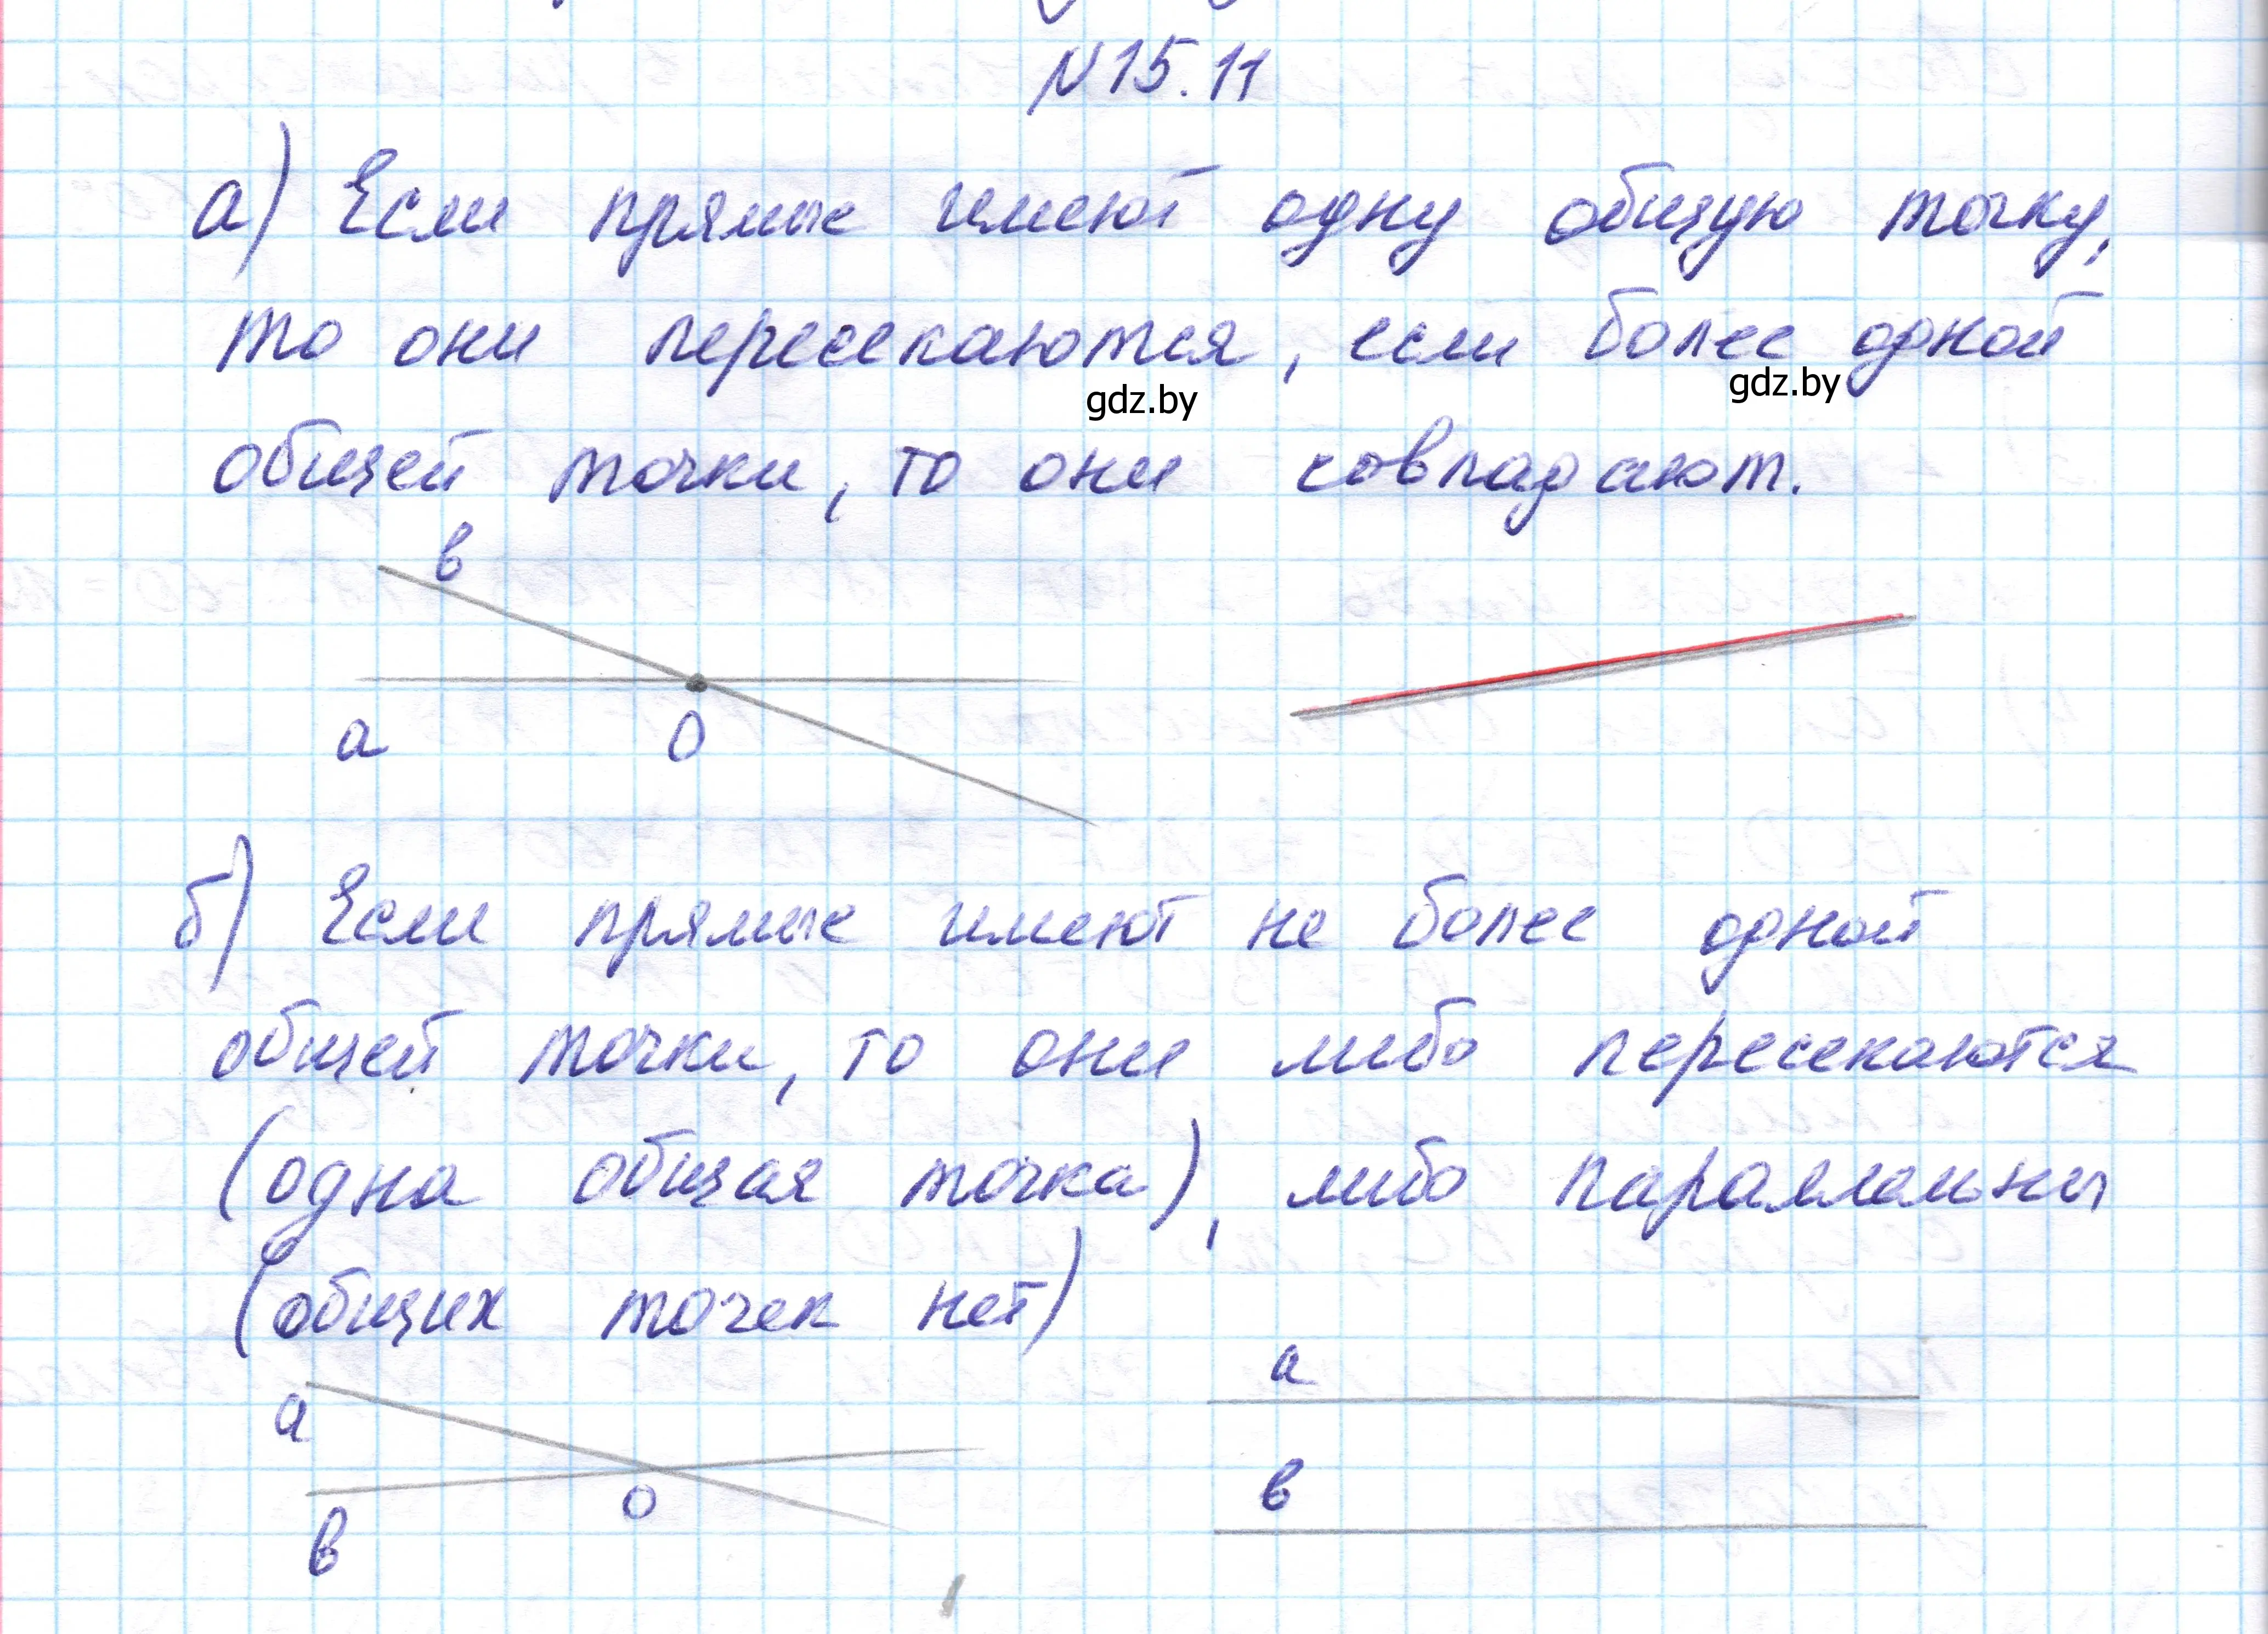 N 15.11
а) Если прямые имеют одну общую точку,
то они пересекаются, если более одной
gdz.by
gdz.by
общей точки, то они совпадают.
в
а
О
б) Если прямые имеют не более одной
общей точки, то они либо пересекаются
(одна общая точка), либо параллельны
(общих точек нет)
а
а
в
О
в